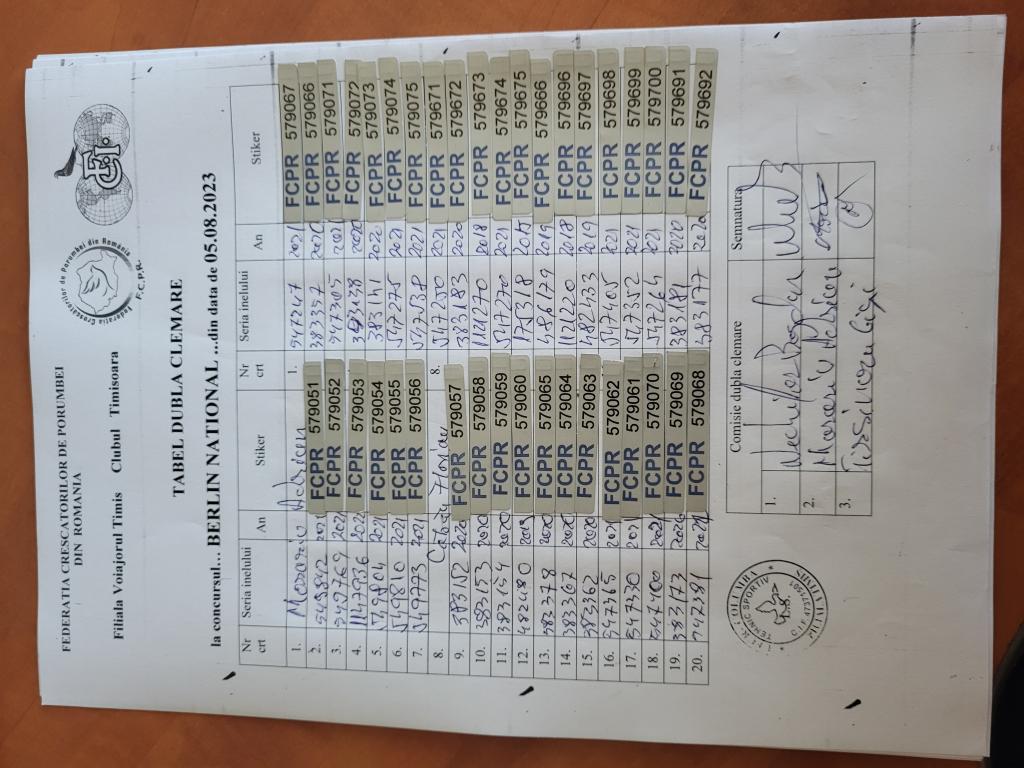 FEDERATIA CRESCATORILOR DE PORUMBEI
DIN ROMANIA
Federatia Crescatorilor de Porumbei din România
F.C.P.R.
FCI
Filiala Voiajorul Timis Clubul Timisoara
TABEL DUBLA CLEMARE
la concursul... BERLIN NATIONAL ...din data de 05.08.2023
Nr crt Seria inelului An Stiker Nr crt Seria inelului An Stiker
1. Adrian 1. 547247 2021 FCPR 579067
2. 2021 FCPR 579051 383357 2020 FCPR 579066
3. 549769 2021 FCPR 579052 547305 2021 FCPR 579071
4. 2021 FCPR 579053 2020 FCPR 579072
5. 549804 2021 FCPR 579054 383141 2020 FCPR 579073
6. 549810 2021 FCPR 579055 547275 2021 FCPR 579074
7. 549773 2021 FCPR 579056 547238 2021 FCPR 579075
8. Florian 8. 547250 2021 FCPR 579671
9. 383152 2020 FCPR 579057 383183 2020 FCPR 579672
10. 383153 2020 FCPR 579058 2018 FCPR 579673
11. 383154 2020 FCPR 579059 547270 2021 FCPR 579674
12. 482480 2019 FCPR 579060 FCPR 579675
13. 383378 2020 FCPR 579065 486179 2019 FCPR 579666
14. 383367 2020 FCPR 579064 2018 FCPR 579696
15. 383362 2020 FCPR 579063 482433 2019 FCPR 579697
16. 547365 2021 FCPR 579062 547405 2021 FCPR 579698
17. 547330 2021 FCPR 579061 547352 2021 FCPR 579699
18. 547400 2021 FCPR 579070 547264 2021 FCPR 579700
19. 383173 2020 FCPR 579069 383181 2020 FCPR 579691
20. FCPR 579068 383177 2020 FCPR 579692
Comisie dubla clemare Semnatura
1. Bogdan
2. Adrian
3. Gigi
COLUMBA
TEHNIC SPORTIV
TIMIS